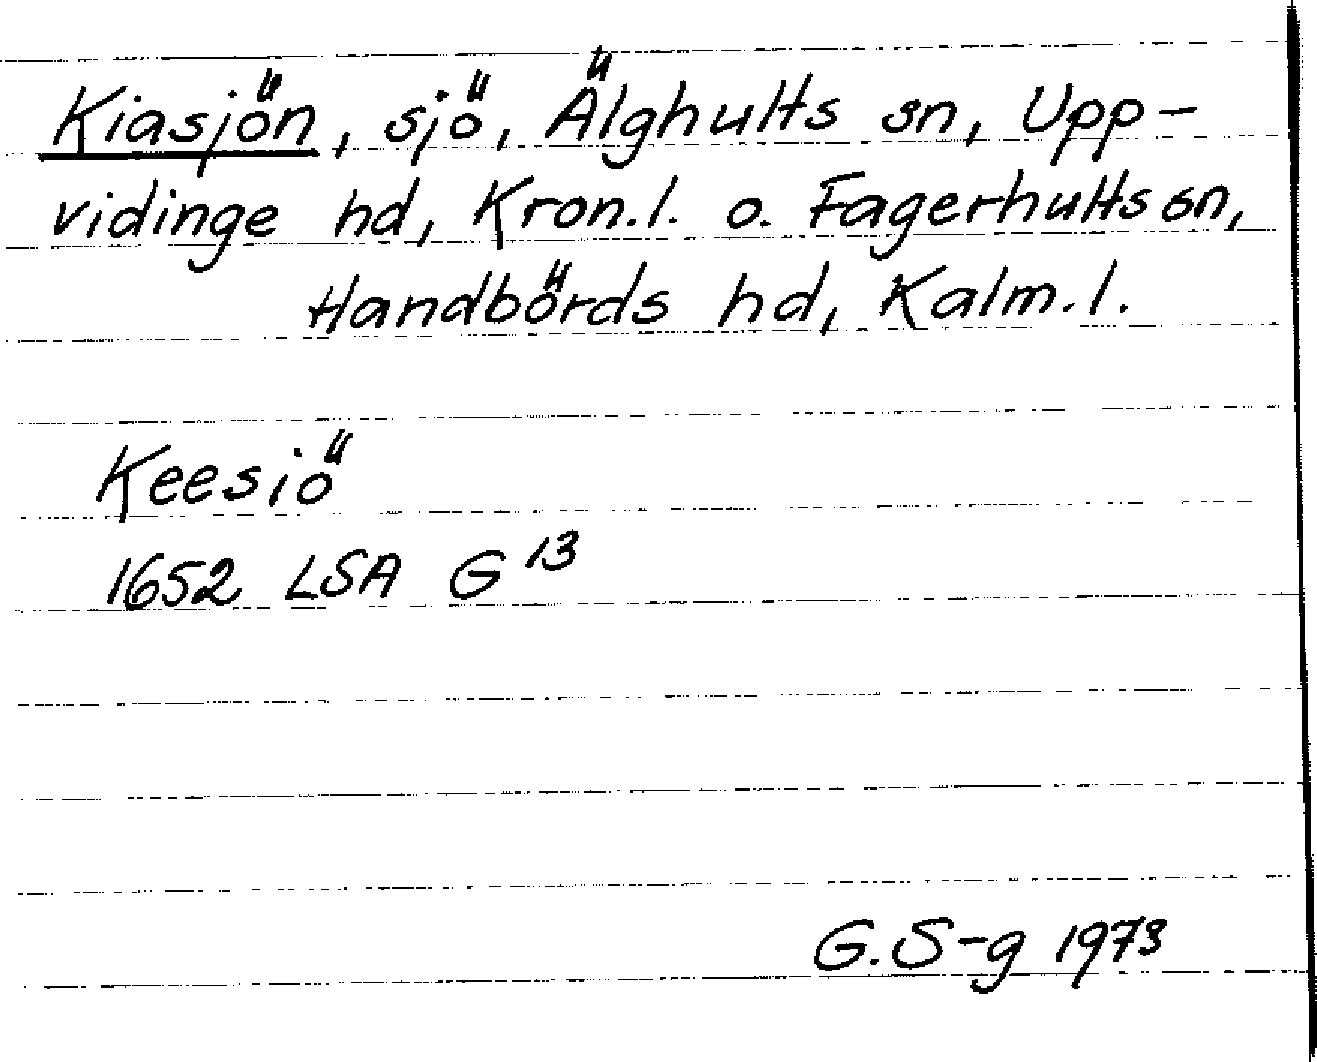 Kiasjön, sjö, Älghults sn, Upp-
vidinge hd, Kron.l. o. Fagerhults sn,
Handbörds hd, Kalm.l.
Keesiö
1652 LSA G 13
G.S-g 1973